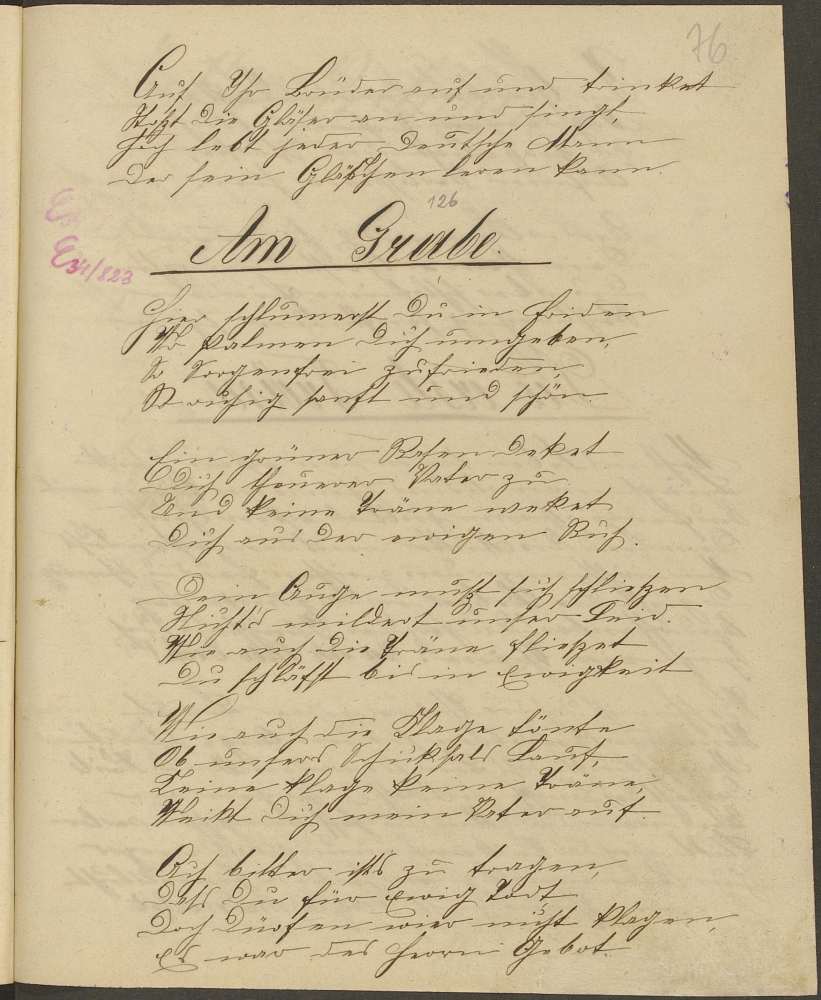 76
Auf Ihr Brüder auf und trinket
Stoßt die Gläser an und singt,
Hoch lebt jeder Deutsche Mann
Der sein Gläschen leren kann.
126
Am Grabe.
E 31/823
Hier schlumerst Du in friden
Wo palmen Dich umgeben,
So Sorgenfrei zufrieden,
So ruhig sanft und schön.
Ein grüner Rasen deket
Dich theurer Vater zu
Und keine Träne weket
Dich aus der ewigen Ruh.
Dein Auge mußt sich schließen
Nicht's mildert unser Leid.
Wie auch die Träne fließet
Du schläfst bis in Ewigkeit
Wie auch die Klage tönte
Ob unsers Schiksals Lauf,
Keine klage keine Träne,
Wekt Dich mein Vater auf.
Ach bitter ists zu tragen,
Daß Du für Ewig Todt
Doch Dürfen wier nicht klagen,
Es war des Herrn Gebot.